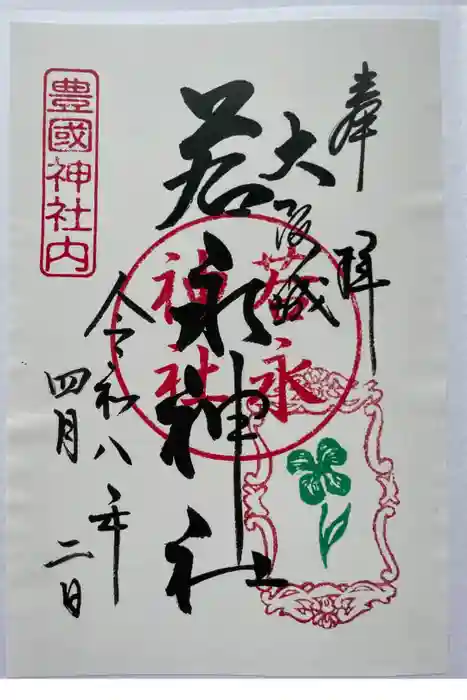 奉拝
大阪城
若永神社
若永神社
豊國神社内
令和八年
四月二日